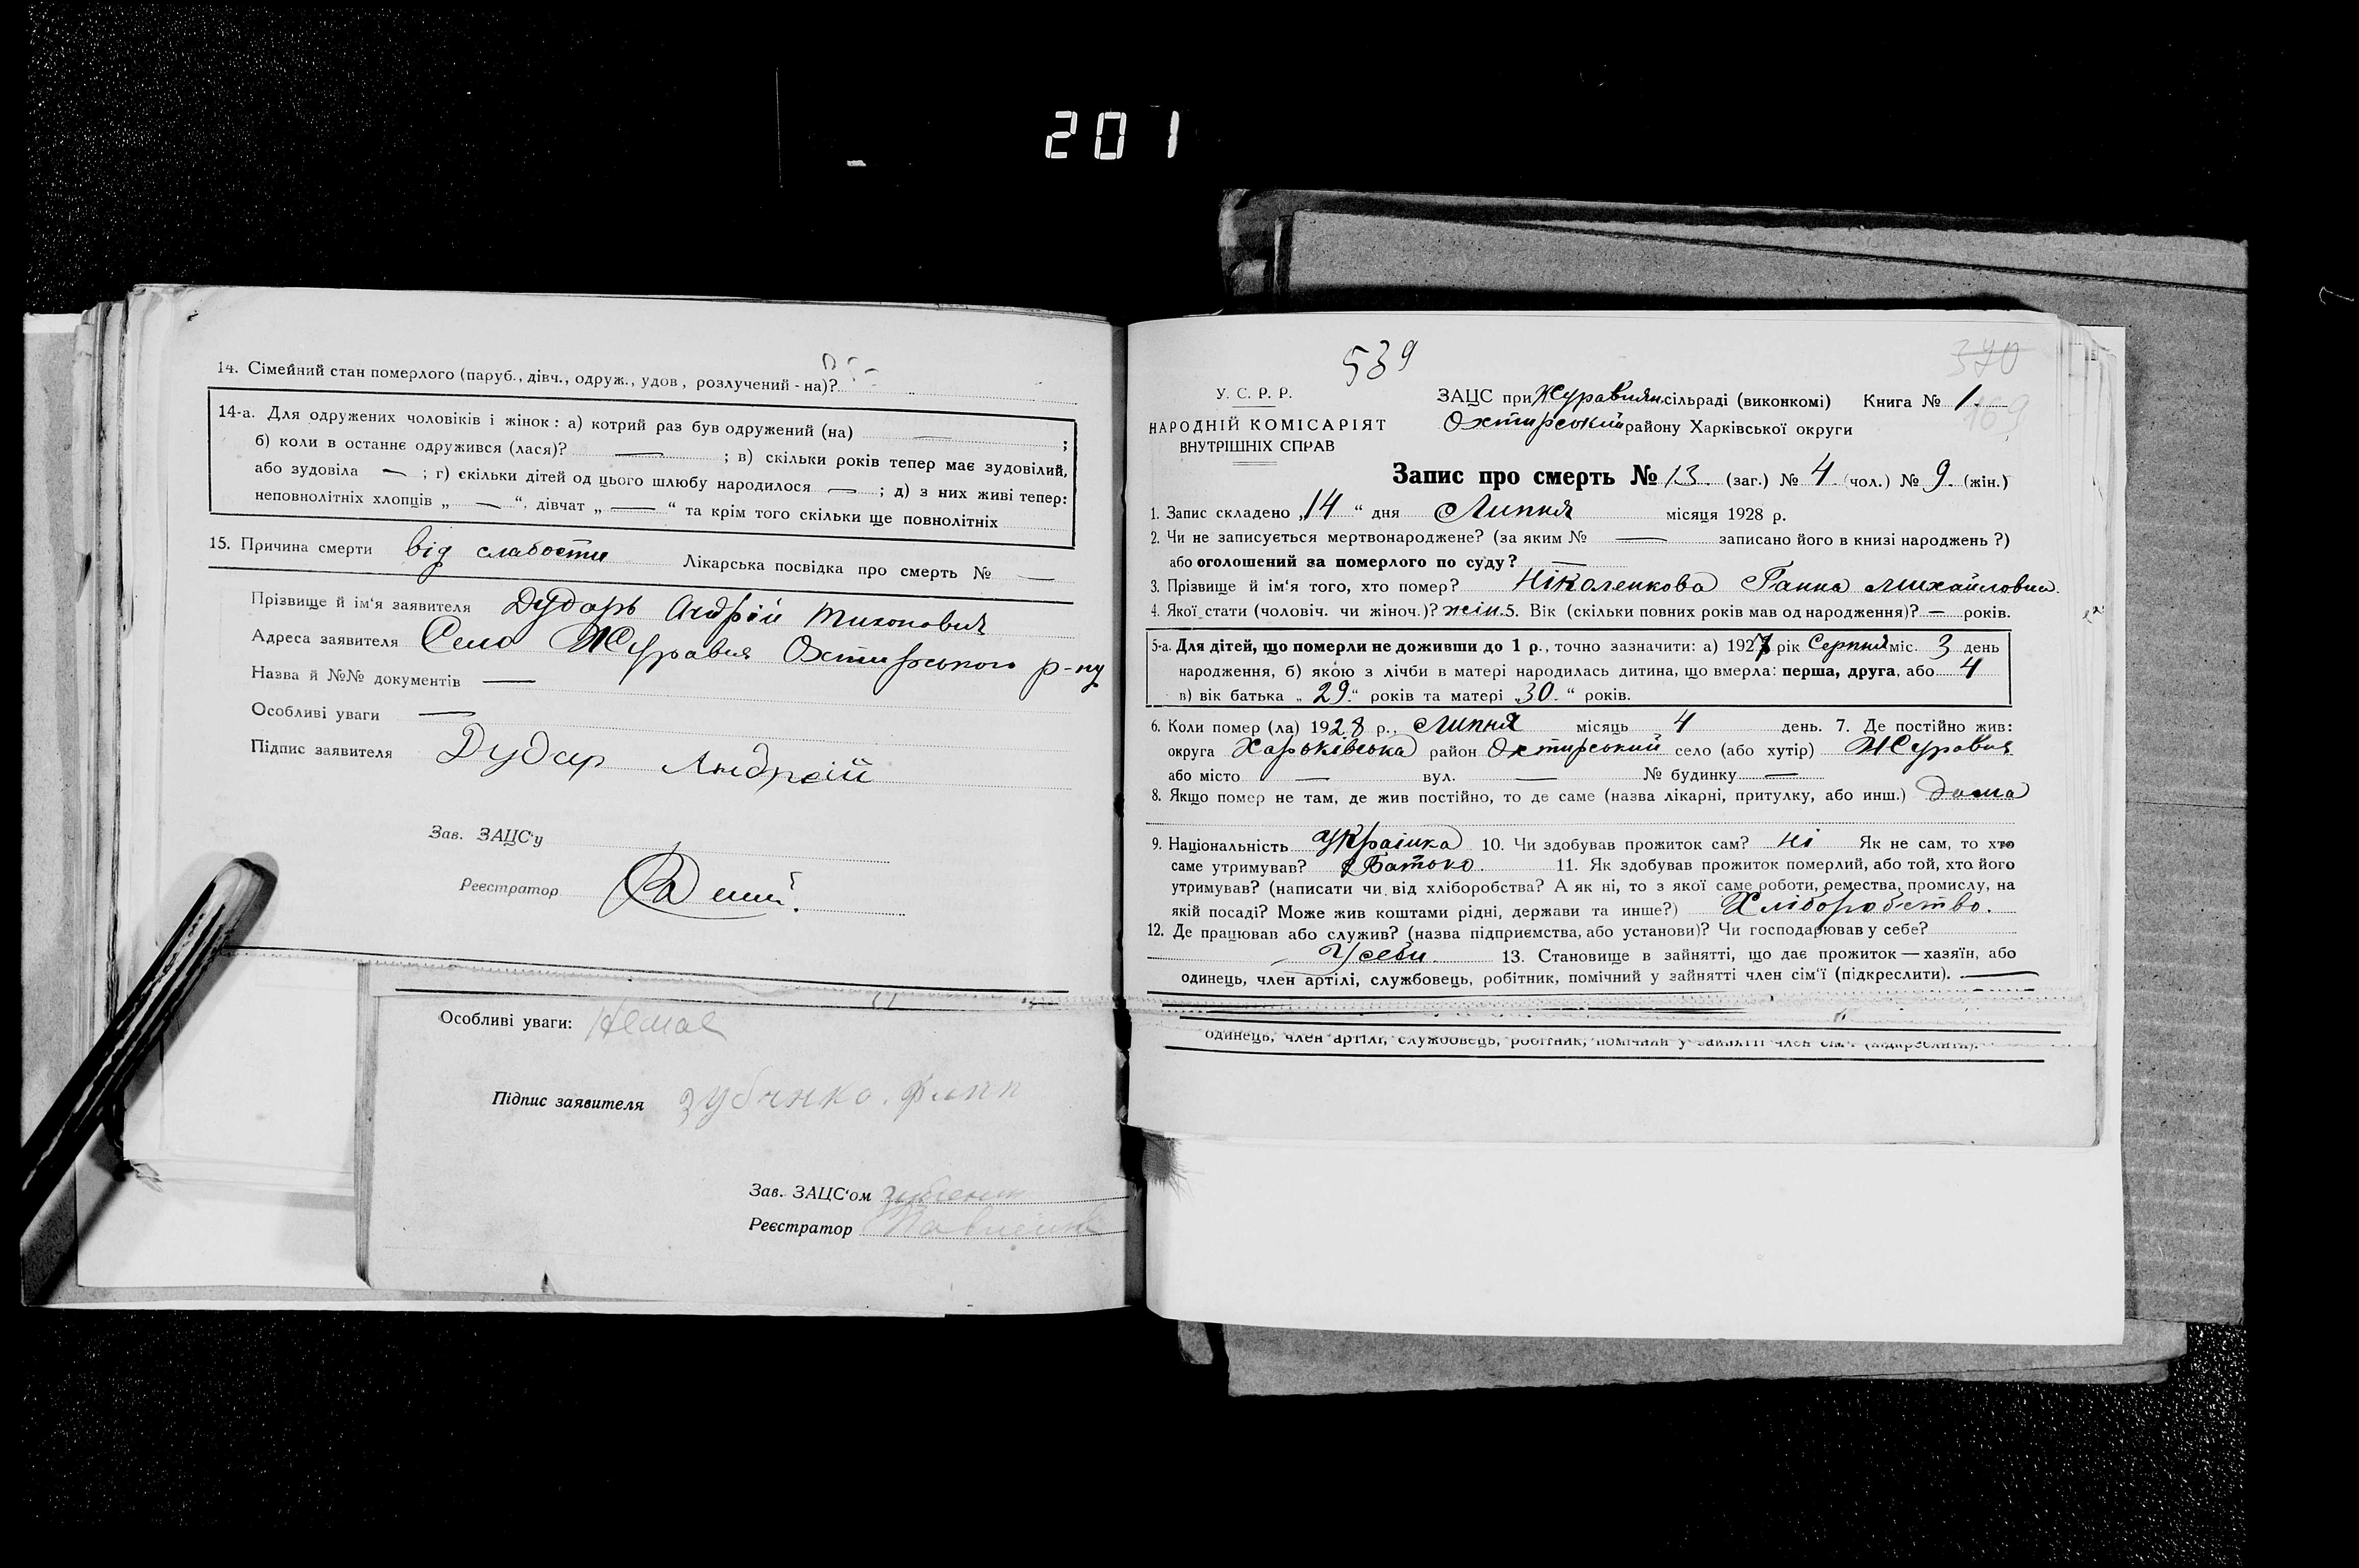 201
14. Сімейний стан померлого (паруб., дівч., одруж., удов, розлучений-на)?
14-а. Для одружених чоловіків і жінок: а) котрий раз був одружений (на) — ;
б) коли в останнє одружився (лася)? — ; в) скільки років тепер має зудовілий,
або зудовіла — ; г) скільки дітей од цього шлюбу народилося — ; д) з них живі тепер:
неповнолітніх хлопців „ — “, дівчат „ — “ та крім того скільки ще повнолітніх
15. Причина смерти від слабости Лікарська посвідка про смерть № —
Прізвище й ім'я заявителя Дударь Андрій Тихонович
Адреса заявителя Село Журавне Охтирського р-ну
Назва й №№ документів —
Особливі уваги —
Підпис заявителя Дудар Андрій
Зав. ЗАЦС'у
Реєстратор
Особливі уваги: Немає
Підпис заявителя
Зав. ЗАЦС'ом
Реєстратор
539
370
169
У. С. Р. Р.
НАРОДНІЙ КОМІСАРІЯТ
ВНУТРІШНІХ СПРАВ
ЗАЦС при Журавнян. сільраді (виконкомі) Книга № 1.
Охтирський району Харківської округи
Запис про смерть № 13. (заг.) № 4. (чол.) № 9. (жін.)
1. Запис складено „14“ дня Липня місяця 1928 р.
2. Чи не записується мертвонароджене? (за яким № — записано його в книзі народжень?)
або оголошений за померлого по суду? —
3. Прізвище й ім'я того, хто помер? Ніколенкова Ганна Михайловна.
4. Якої стати (чоловіч. чи жіноч.)? жін. 5. Вік (скільки повних років мав од народження)? — років.
5-а. Для дітей, що померли не доживши до 1 р., точно зазначити: а) 1927 рік Серпня міс. 3 день
народження, б) якою з лічби в матері народилась дитина, що вмерла: перша, друга, або 4
в) вік батька „29.“ років та матері „30.“ років.
6. Коли помер (ла) 1928 р., Липня місяць 4 день. 7. Де постійно жив:
округа Харьківська район Охтирський село (або хутір) Журавне
або місто — вул. — № будинку —
8. Якщо помер не там, де жив постійно, то де саме (назва лікарні, притулку, або инш.) дома
9. Національність Украінка 10. Чи здобував прожиток сам? ні Як не сам, то хто
саме утримував? Батько. 11. Як здобував прожиток померлий, або той, хто його
утримував? (написати чи від хліборобства? А як ні, то з якої саме роботи, ремества, промислу, на
якій посаді? Може жив коштами рідні, держави та инше?) Хліборобство.
12. Де працював або служив? (назва підприємства, або установи)? Чи господарював у себе?
У себи. 13. Становище в зайнятті, що дає прожиток — хазяїн, або
одинець, член артілі, службовець, робітник, помічний у зайнятті член сім'ї (підкреслити). —
одинець, член артілі, службовець, робітник, помічний у зайнятті член сім'ї (підкреслити).